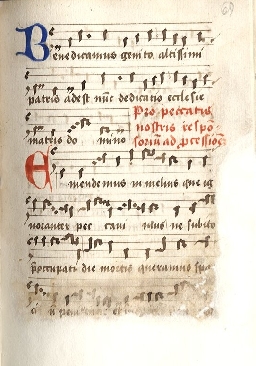 69
Benedicamus genito altissimi
patris adest nũc dedicatio ecclesie
matris do mino
Pro peccatis
nostris respo
soriũ ad p̱cessionẽ
Emendemus in melius que ig
noranter pec cavi mus ne subito
p̱occupati die mortis queramus spa